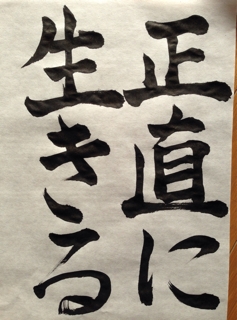 正直に
生きる